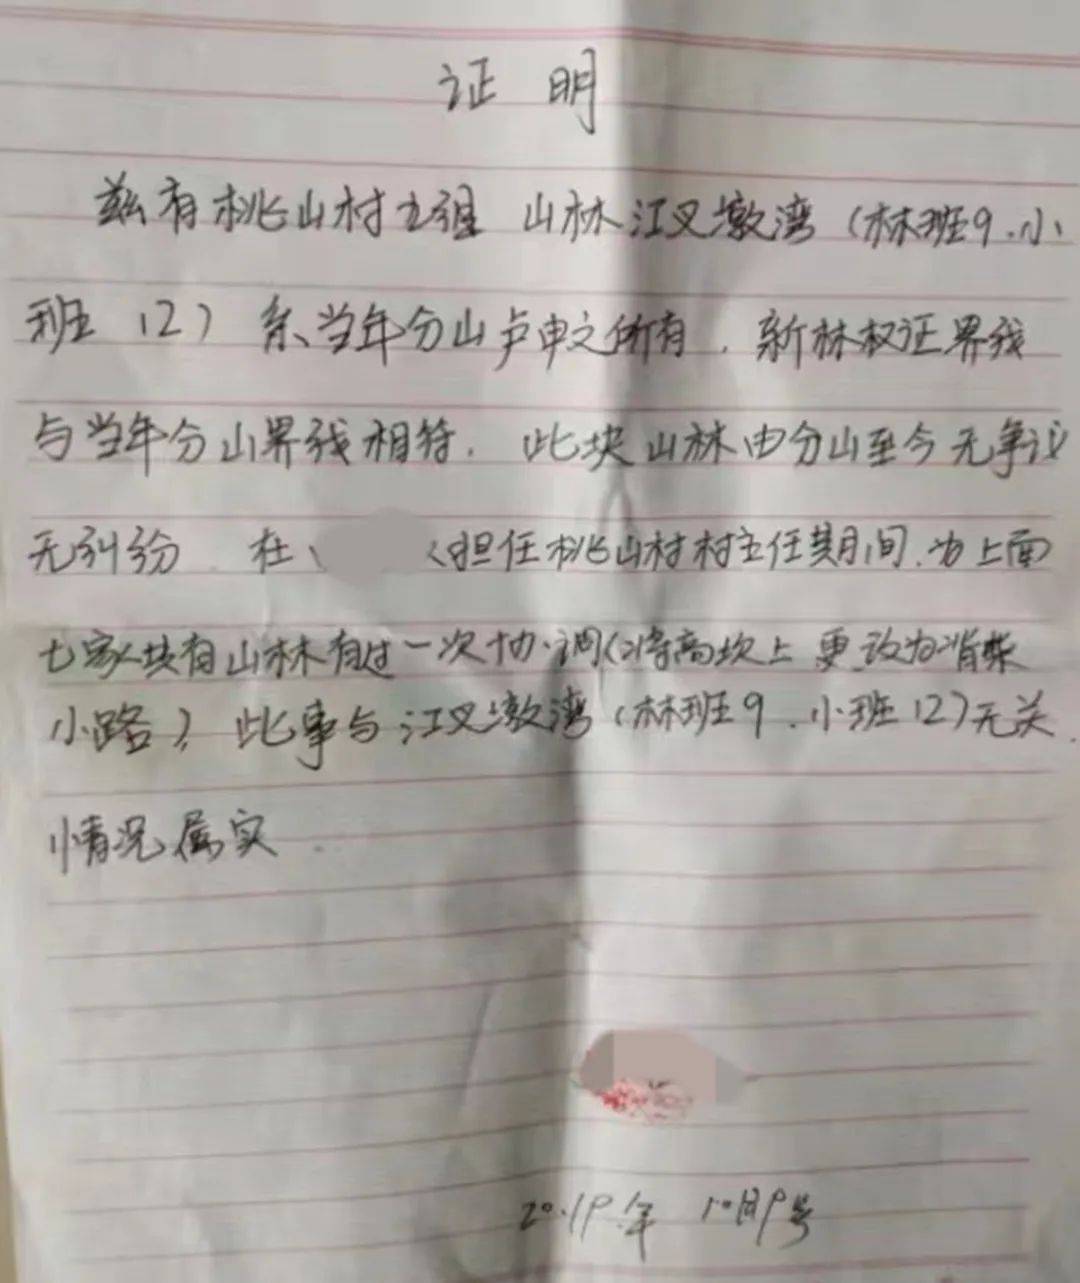 证 明
兹有桃山村五组 山林江叉墩湾（林班9.小
班 12）系当年分山卢申文所有．新林权证界线
与当年分山界线相符．此块山林由分山至今无争议
无纠纷．在 担任桃山村村主任期间.为上面
七家块有山林有过一次协调（将高坎上 更改为背柴
小路）．此事与江叉墩湾（林班9．小班12）无关．
情况属实．
2019年 10月9号